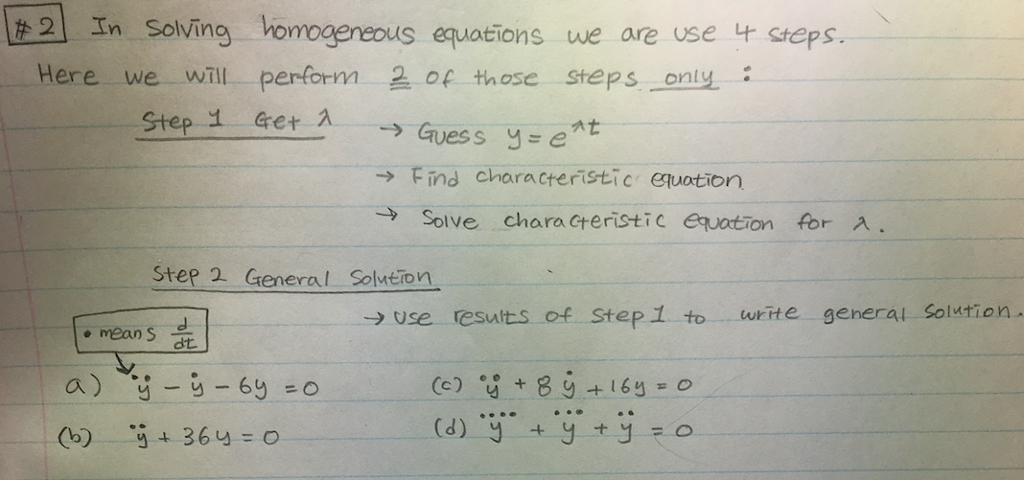 #2 In Solving homogeneous equations we are use 4 steps.
Here we will perform 2 of those steps only :
Step 1 Get λ → Guess y = e^λt
→ Find characteristic equation
→ Solve characteristic equation for λ.
Step 2 General Solution
→ Use results of Step 1 to write general solution.
• means d/dt
a) ÿ - ẏ - 6y = 0 (c) ÿ + 8ẏ + 16y = 0
(b) ÿ + 36y = 0 (d) y⃜ + y⃛ + ÿ = 0